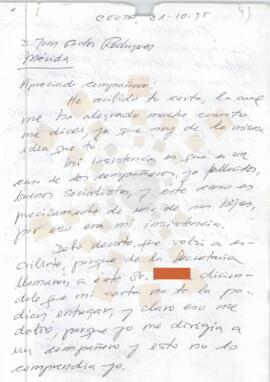 4)
CEUTA, 31-10-95
D. Juan Carlos Rodríguez
Mérida
Apreciado compañero:
He recibido tu carta, la cual
me ha alegrado mucho cuanto
me dices, ya que soy de la misma
idea que tú.
Mi insistencia es que es un
caso de dos compañeros, ya fallecidos,
buenos socialistas, y este caso es
precisamente de uno de sus hijos,
por eso era mi insistencia.
Debo decirte que volví a es-
cribirte, porque de la Secretaria
llamaron a este Sr. dicien-
dole que mi carta no te la po-
dian entregar, y claro eso me
dolió, porque yo me dirigía
a un compañero y esto no lo
comprendia yo.